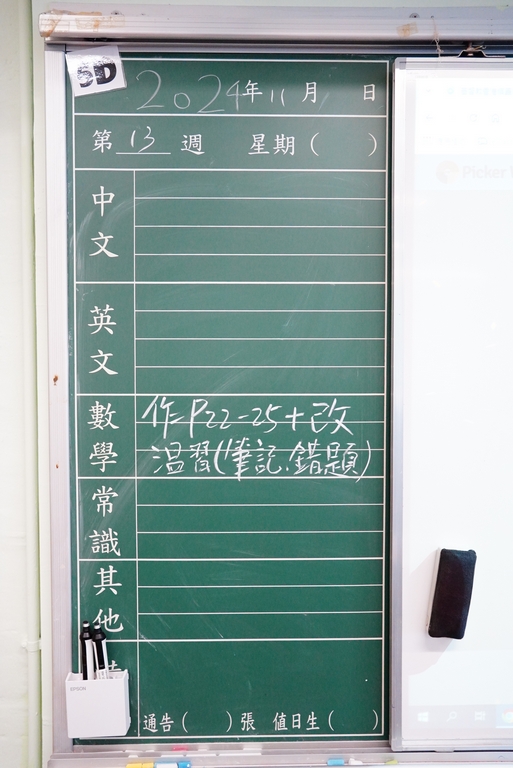 5D
2024年11月 日
第13週 星期( )
中文
英文
數學
作=P22-25+改
溫習(筆記.錯題)
常識
其他
EPSON
通告( )張 值日生( )
Picker